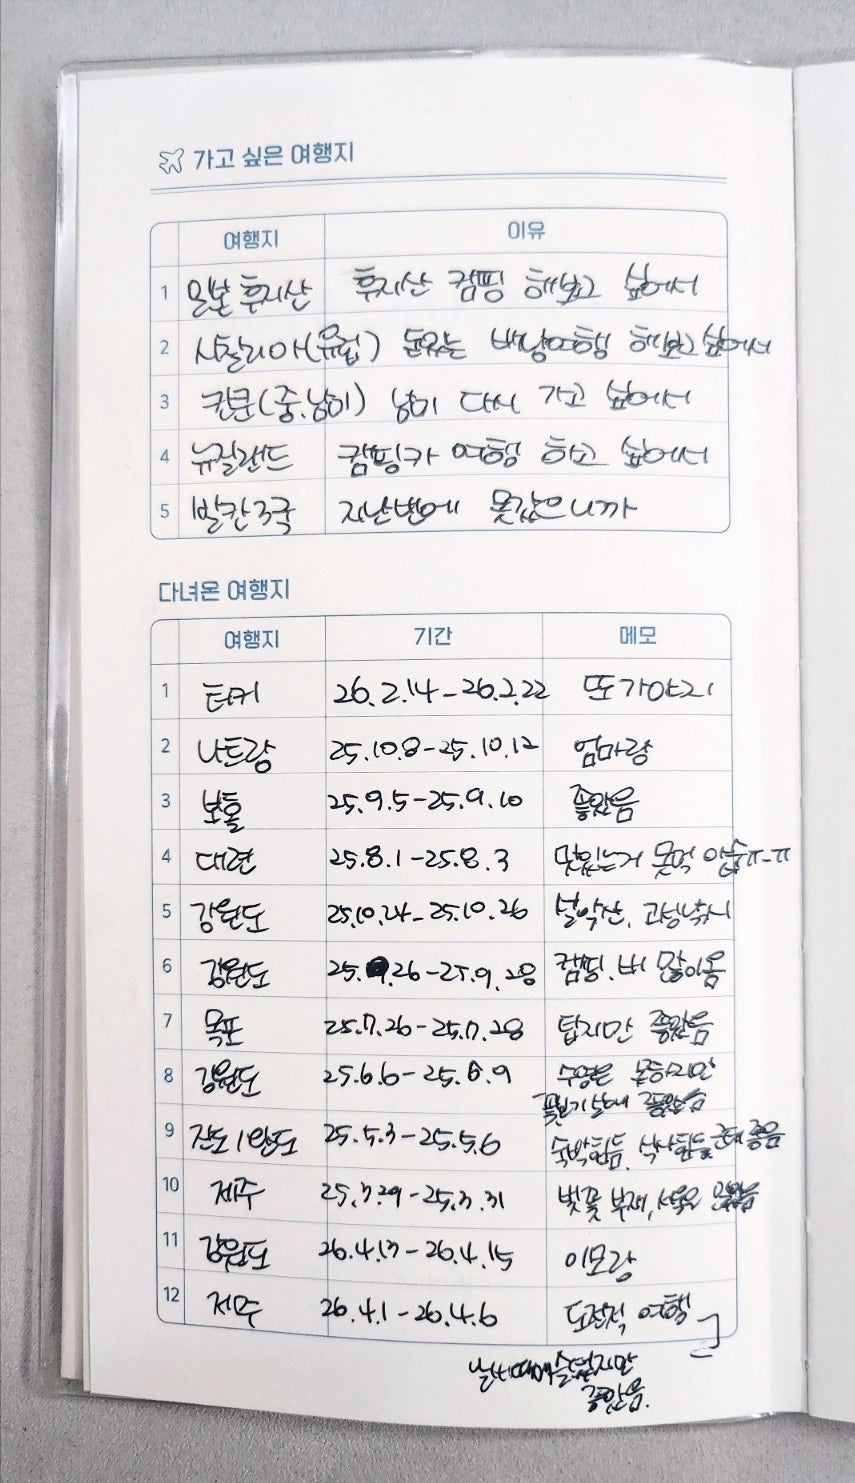 가고 싶은 여행지
여행지 이유
1 일본 후지산 후지산 캠핑 해보고 싶어서
2 시칠리아(유럽) 돈있는 배낭여행 해보고 싶어서
3 칸쿤(중.남미) 남미 다시 가고 싶어서
4 뉴질랜드 캠핑카 여행 하고 싶어서
5 발칸3국 지난번에 못갔으니까
다녀온 여행지
여행지 기간 메모
1 터키 26.2.14-26.2.22 또 가야지
2 나트랑 25.10.8-25.10.12 엄마랑
3 보홀 25.9.5-25.9.10 좋았음
4 대련 25.8.1-25.8.3 맛있는거 못먹
5 강원도 25.10.24-25.10.26 설악산, 고성낚시
6 강원도 25.9.26-25.9.28 캠핑. 비 많이옴
7 목포 25.7.26-25.7.28 덥지만 좋았음
8 강원도 25.6.6-25.6.9 수영은 못하지만
좋았음
9 진도/완도 25.5.3-25.5.6 숙박힘듦, 식사힘듦 근데 좋음
10 제주 25.3.29-25.3.31 벚꽃 부재,
11 강원도 26.4.13-26.4.15 이모랑
12 제주 26.4.1-26.4.6 도전적 여행
날씨때매 슬펐지만
좋았음.